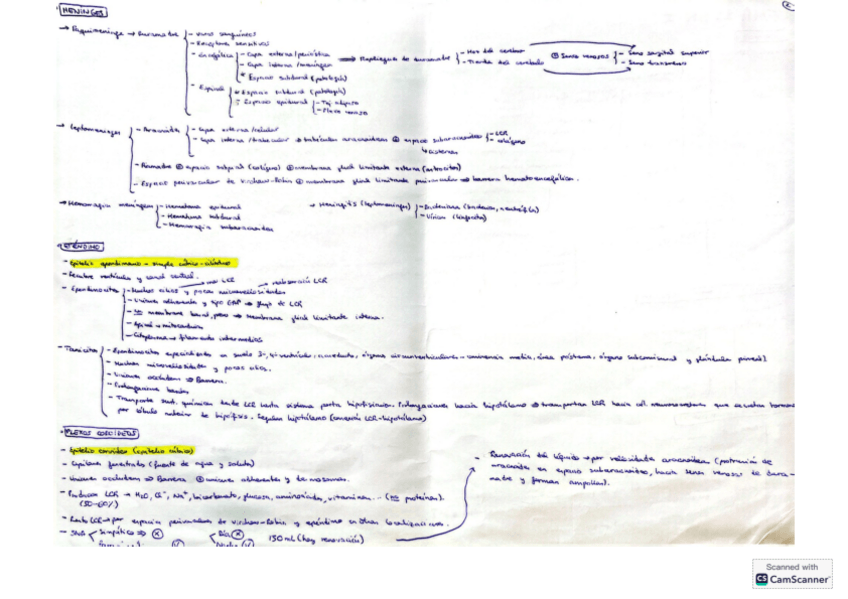 MENINGES
→ Paquimeninge → Duramadre - Vasos sanguíneos
- Receptores sensitivos
- Encefálica - Capa externa/perióstica → Repliegues de duramadre - Hoz del cerebro - Tienda del cerebelo ⊕ Senos venosos - Seno sagital superior - Seno transverso
- Capa interna/meníngea
* Espacio subdural (patología)
- Espinal * Espacio subdural (patología)
- Espacio epidural - Tej. adiposo
- Plexo venoso
→ Leptomeninges - Aracnoides - Capa externa/celular
- Capa interna/trabecular → trabéculas aracnoideas ⊕ espacio subaracnoideo - LCR - colágeno
↳ Cisternas
- Piamadre ⊕ espacio subpial (colágeno) ⊕ membrana glial limitante externa (astrocitos)
- Espacio perivascular de Virchow-Robin ⊕ membrana glial limitante perivascular → barrera hematoencefálica.
→ Hemorragia meníngea - Hematoma epidural
- Hematoma subdural
- Hemorragia subaracnoidea
→ Meningitis (leptomeninges) - Bacteriana (bacterias, neutrófilos)
- Vírica (linfocitos)
EPÉNDIMO
- Epitelio ependimario - simple cúbico-cilíndrico
- Recubre ventrículos y canal central.
- Ependimocitos - Muchos cilios y pocas microvellosidades
→ mov LCR → reabsorción LCR
- Uniones adherentes y tipo GAP → flujo de LCR
- No membrana basal, pero → Membrana glial limitante interna.
- Apical → mitocondrias
- Citoplasma → filamentos intermedios
- Tanicitos - Ependimocitos especializados en suelo 3er, 4º ventrículo, acueducto, órganos circunventriculares - eminencia media, área postrema, órgano subcomisural y glándula pineal)
- Muchas microvellosidades y pocos cilios.
- Uniones occludens → Barrera.
- Prolongaciones basales
- Transporte sust. químicas desde LCR hasta sistema porta hipofisario. Prolongaciones hacia hipotálamo → transportan LCR hacia cél. neurosecretoras que secretan hormonas
por lóbulo anterior de hipófisis. Regulan hipotálamo (conexión LCR-hipotálamo)
PLEXOS COROIDEOS
- Epitelio coroideo (epitelio cúbico)
- Capilares fenestrados (fuente de agua y solutos)
- Uniones occludens → Barrera ⊕ uniones adherentes y desmosomas.
- Producen LCR → H₂O, Cl⁻, Na⁺, bicarbonato, glucosa, aminoácidos, vitaminas... (no proteínas).
(50-60%)
- Resto LCR → por espacios perivasculares de Virchow-Robin y epéndimo en otras localizaciones.
- SNA Simpático → Día
150 ml (hay renovación)
- Renovación del líquido → por vellosidades aracnoideas (protrusión de
aracnoides en espacio subaracnoideo, hacia senos venosos de dura-
madre y forman ampollas).
Scanned with
CS CamScanner